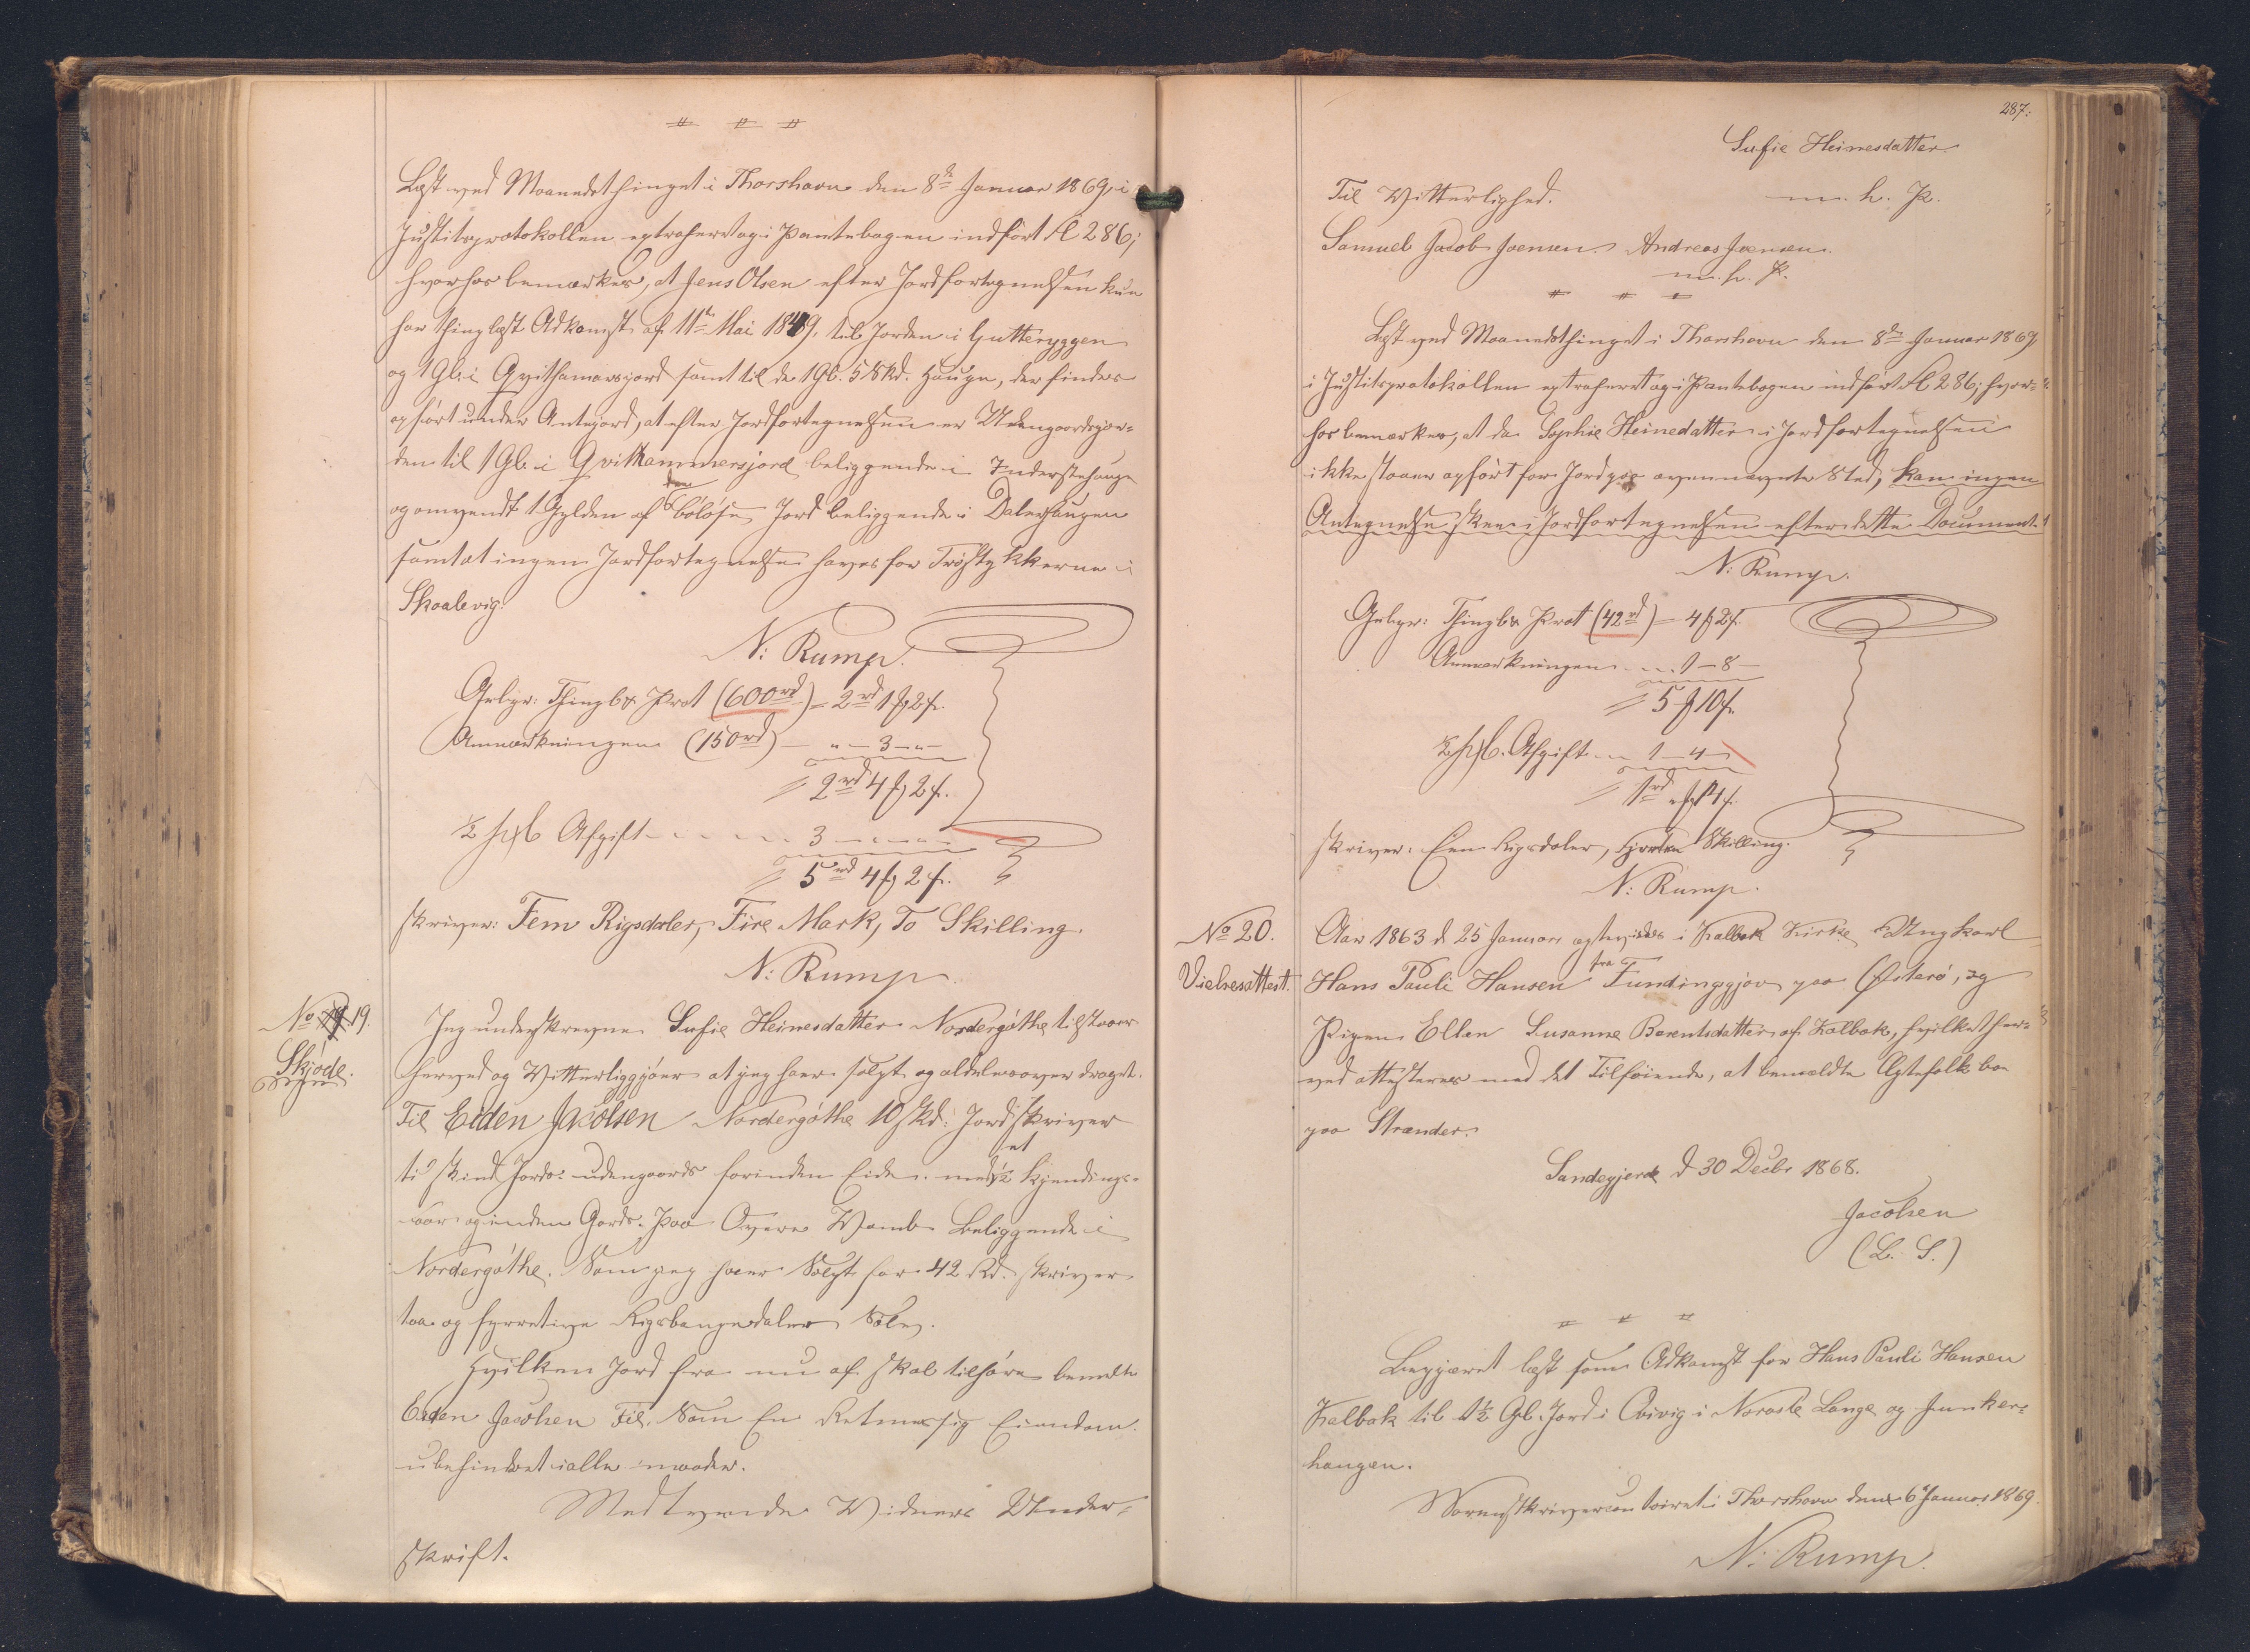 Læst ved Maanedsthinget i Thorshavn den 8de Januar 1869, i
Justitsprotokollen extraheret og i Pantebogen indført fol 286;
hvorhos bemærkes, at Jens Olsen efter Jordfortegnelsen kun
har thinglæst Adkomst af 11te Mai 1849, til Jorden i Gutteryggen
og 1 Gl. i Qvithamarsjord samt til de 1 Gl. 5 Skd. Haugn, der findes
opført under Antejord, at efter Jordfortegnelsen er Udengaardsjor-
den til 1 Gl. i Qvithammersjord beliggende i Inderstehauge
og omvendt 1 Gylden af den bóløse Jord beliggende i Dalerhaugen
samt at ingen Jordfortegnelse haves for Tröstykkerne i
Skaalevig.
N: Rump.
Gebyr: Thingl & Prot (600rd) = 2rd 1 ß 2 f.
Anmærkningen (150rd) — " — 3 — " —
2rd 4 ß 2 f.
½ pCt Afgift - - - - 3 — - - -
5rd 4 ß 2 f.
skriver: Fem Rigsdaler, Fire Mark, To Skilling.
N: Rump
No 19.
Skjöde.
Jeg underskrevne Sufie Heinesdatter Nordergóthe tilstaaer
herved og Witterliggjöer at jeg haer solgt og aldeles over draget
Til Eiden Jacobsen Nordergóthe 10 Skd: Jord skriver
ti Skind Jords udengaards forinden Eide. med et ½ Kjendings-
oar og inden Gards. Paa Overe Wamb Beliggende i
Nordergóthe. Som jeg haver Solgt for 42 Rd. skriver
toa og fyrretive Rigsbangedaler Sølv.
Hvilken Jord fra nu af skal tilhöre bemelte
Eiden Jacobsen Til. Som En Retmessig Eiendom
ubehindret i alle maader.
Med tvende Widners Under-
skrift.
287.
Sufie Heinesdatter
Til Witterlighed. m. h. P.
Samuel Jacob Joensen. Andreas Joensen.
m. h. P.
Læst ved Maanedsthinget i Thorshavn den 8de Januar 1869
i Justitsprotokollen extraheret og i Pantebogen indført fol 286; hvor-
hos bemærkes, at da Sophie Heinedatter i Jordfortegnelsen
ikke staaer opført for Jord paa ovennævnte Sted, kan ingen
Antegnelse skee i Jordfortegnelsen efter dette Document.
N: Rump.
Gebyr: Thingl & Prot (42rd) = 4 ß 2 f.
Anmærkningen - - - 1 — 8 —
5 ß 10 f.
½ pCt. Afgift - - 1 — 4 —
1rd " ß 14 f.
skriver: Een Rigsdaler, fjorten Skilling.
N: Rump.
No 20.
Vielsesattest.
Aar 1863 d 25 Januar ægteviedes i Kalbak Kirke Ungkarl
Hans Pauli Hansen fra Fundingsgjov paa Østerö, og
Pigen Ellen Susanne Barentsdatter af Kalbak, hvilket her-
ved attesteres med det Tilföiende, at bemeldte Ægtefolk boe
paa Strænder.
Sandegjerde d 30 Decbr 1868.
Jacobsen
(L. S.)
Begjæret læst som Adkomst for Hans Pauli Hansen
Kalbak til 1½ Gl. Jord i i Noraste Lange og Junker-
haugen.
Sorenskrivercontoiret i Thorshavn den 6 Januar 1869.
N: Rump.